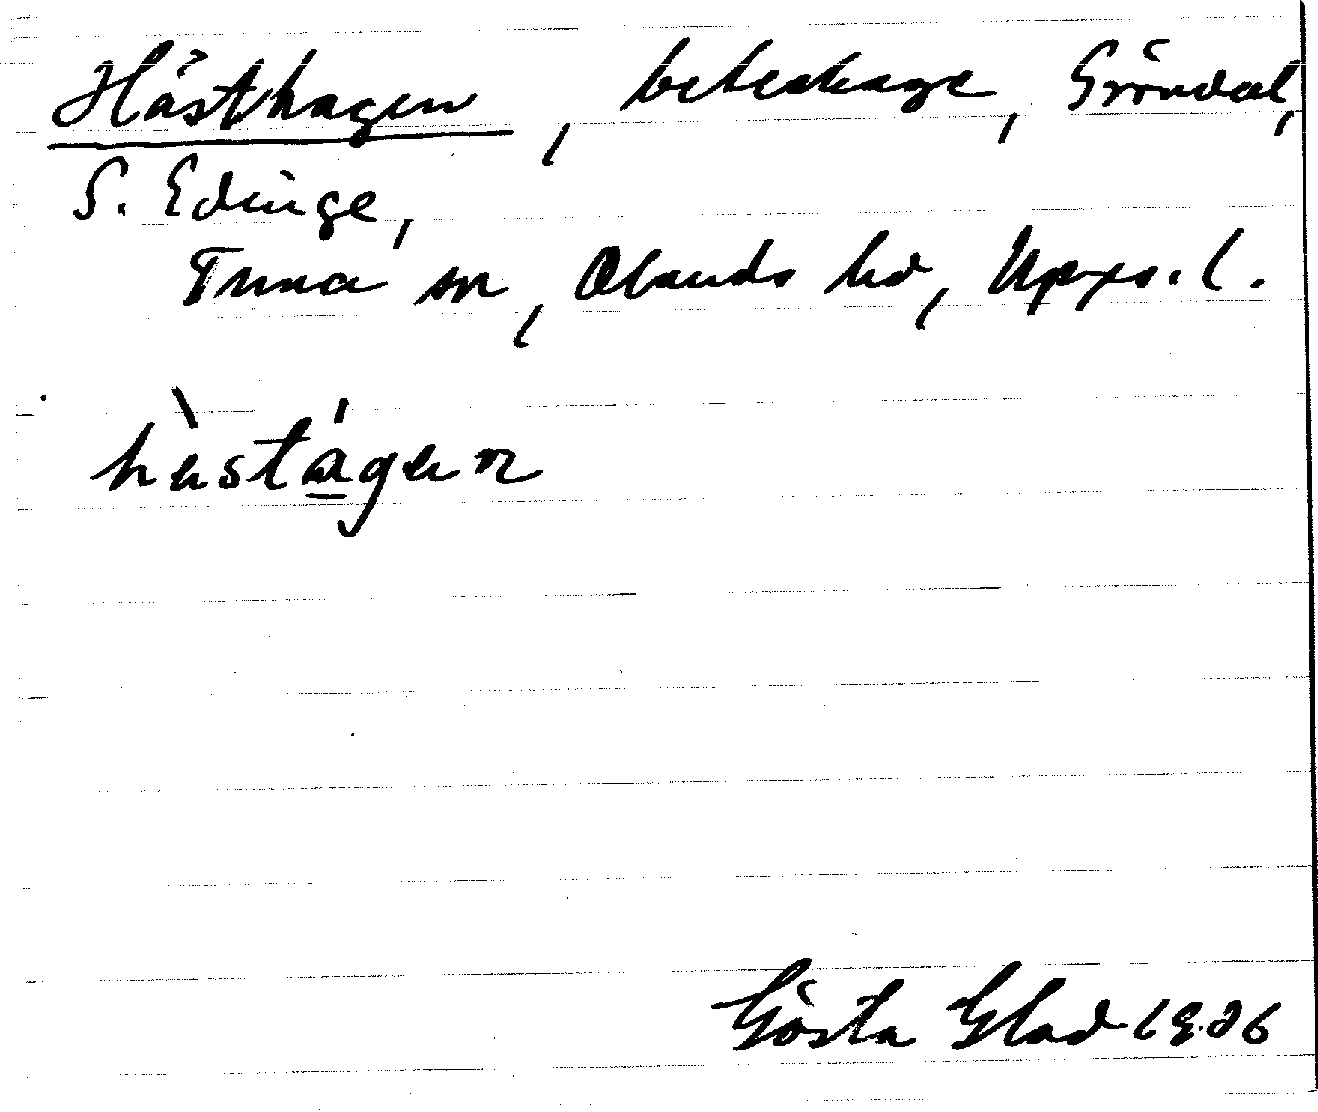 Hästhagen, beteshage, Gröndal,
S. Edinge,
Tuna sn, Olands hd, Upps. l.
hὲstágεn
Gösta Glad 1986